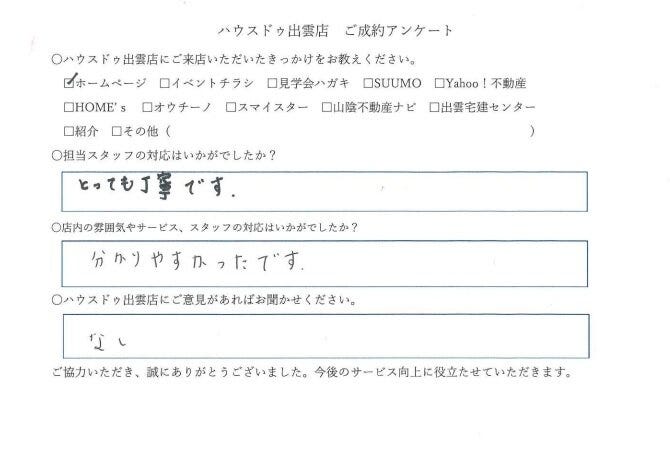 ハウスドゥ出雲店　ご成約アンケート
〇ハウスドゥ出雲店にご来店いただいたきっかけをお教えください。
☑ホームページ　□イベントチラシ　□見学会ハガキ　□SUUMO　□Yahoo！不動産
□HOME's　□オウチーノ　□スマイスター　□山陰不動産ナビ　□出雲宅建センター
□紹介　□その他（　　　　　　　　　　　　　　　　　　　　）
〇担当スタッフの対応はいかがでしたか？
とっても丁寧です.
〇店内の雰囲気やサービス、スタッフの対応はいかがでしたか？
分かりやすかったです.
〇ハウスドゥ出雲店にご意見があればお聞かせください。
なし
ご協力いただき、誠にありがとうございました。今後のサービス向上に役立たせていただきます。